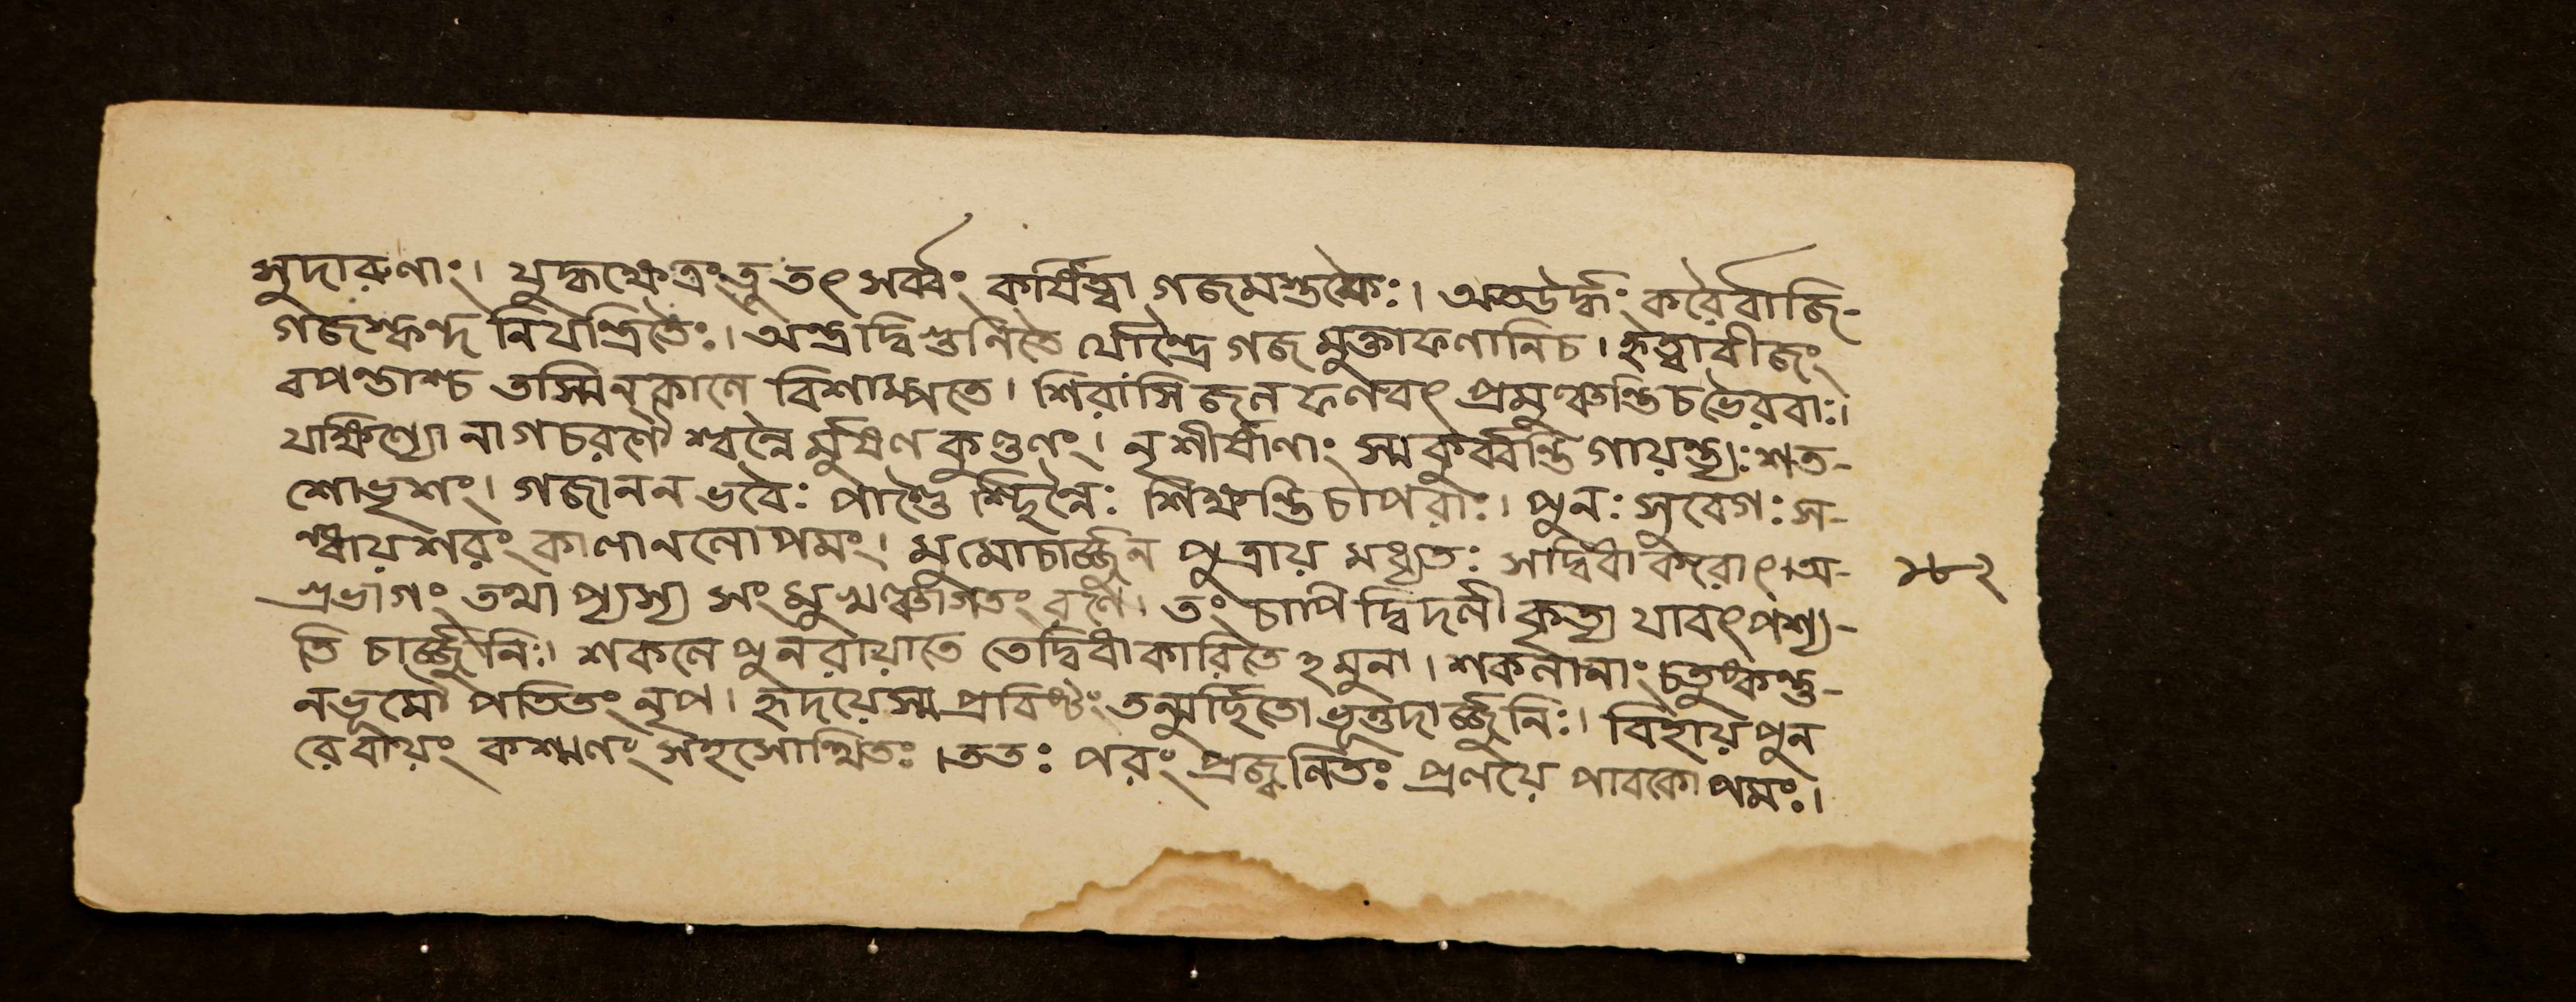 সুদারুণাং। যুদ্ধক্ষেত্রংতু তৎ সর্ব্বং কর্ষিত্বা গজমস্তকৈঃ। অতঊর্দ্ধং করৈর্বাজি-
গজস্কন্দ নিযন্ত্রিতৈঃ। অন্ত্রাদ্বি গজ মুক্তাফলানিচ। হৃত্বাবীজং
বপন্তাশ্চ তস্মিন্ কালে বিশাম্পতে। শিরাংসি জল ফলবৎ প্রমুঞ্চন্তি চভৈরবাঃ।
যক্ষিণ্যো নাগচরণৈ শ্ছন্নৈ র্মুষল কুণ্ডলং। নৃশীর্ষাণাং স্মকুর্ব্বন্তি গায়ন্ত্যঃ শত-
শোভৃশং। গজানন ভবৈঃ শ্ছিন্নৈঃ চাপরাঃ। পুনঃ সুবেগঃ স-
ন্ধায়শরং কালানলোপমং। মুমোচার্জ্জুন পুত্রায় মধ্যতঃ সদ্বিধাকরোৎ।অ- ১৮২
গ্রভাগং তথা প্যস্য সংমুখঞ্চাগতং রণে। তং চাপি দ্বিদলী কৃত্য যাবৎপশ্য-
তি চার্জ্জুনিঃ। শকলে পুনরায়াতে তেদ্বিধাকারিতে ঽমুনা। শকলানাং চতুষ্কন্তু-
নভূমৌ পতিতং নৃপ। হৃদয়েস্ম প্রবিষ্টং তন্মূর্ছিতো ভূত্তদার্জ্জুনিঃ। বিহায়পুন
রেবায়ং কশ্মলং সহসোত্থিতঃ।ততঃ পরং প্রজ্বলিতঃ প্রলয়ে পাবকোপমঃ।